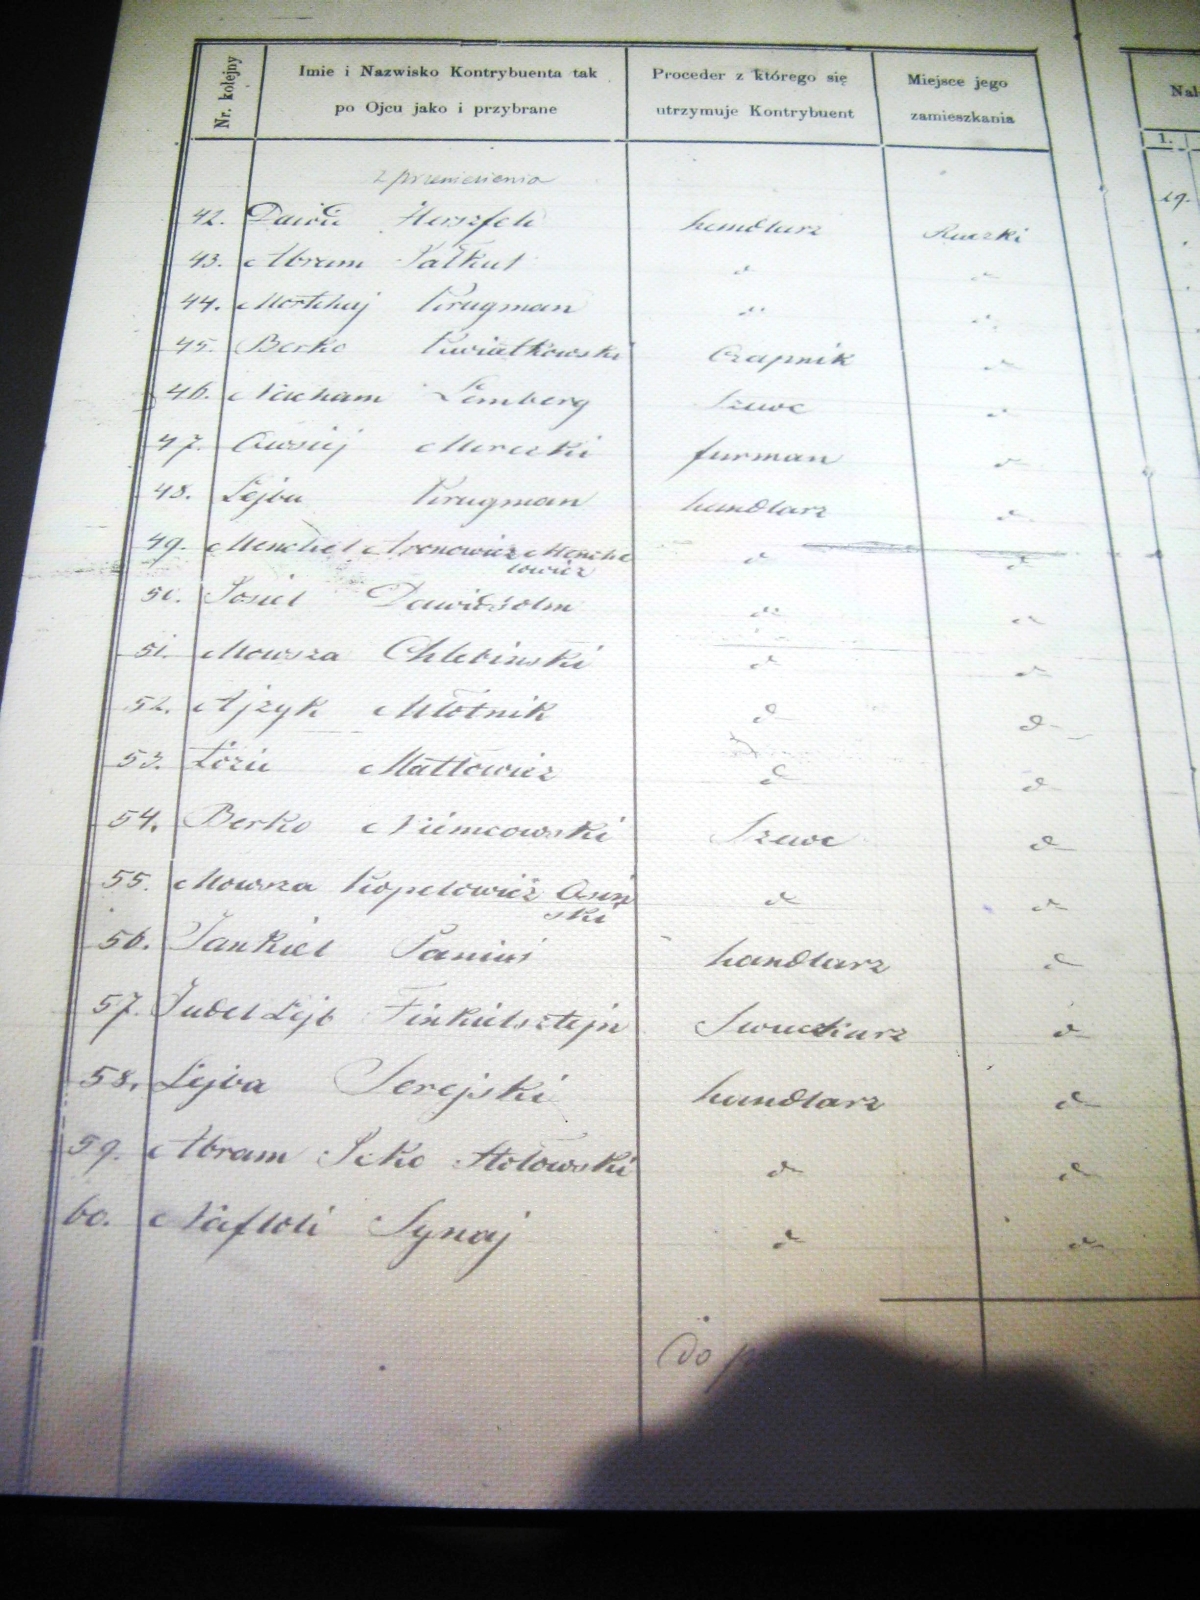 Nr. kolejny Imie i Nazwisko Kontrybuenta tak po Ojcu jako i przybrane Proceder z którego się utrzymuje Kontrybuent Miejsce jego zamieszkania
1.
z przeniesienia
42. Dawid Herszfeld handlarz Raczki 19.
43. Abram Kałkut d d
44. Mortchaj Krugman d d
45. Berko Kwiatkowski Czapnik d
46. Nacham Lemberg Szewc d
47. Owsiej Mereczki furman d
48. Lejba Krugman handlarz d
49. Menchel Aronowicz Menche
lowicz d d
50. Josiel Dawidsohn d d
51. Mowsza Chlebinski d d
52. Ajzyk Młotnik d d
53. Matłowicz d d
54. Berko Niemcowski Szewc d
55. Mowsza Kopelowicz Osiń
ski d d
56. Jankiel Paniuś handlarz d
57. Judel Lejb Finkielsztejn d
58. Lejba Serejski handlarz d
59. Abram Icko Stołowski d d
60. Naftoli Synaj d d
Do